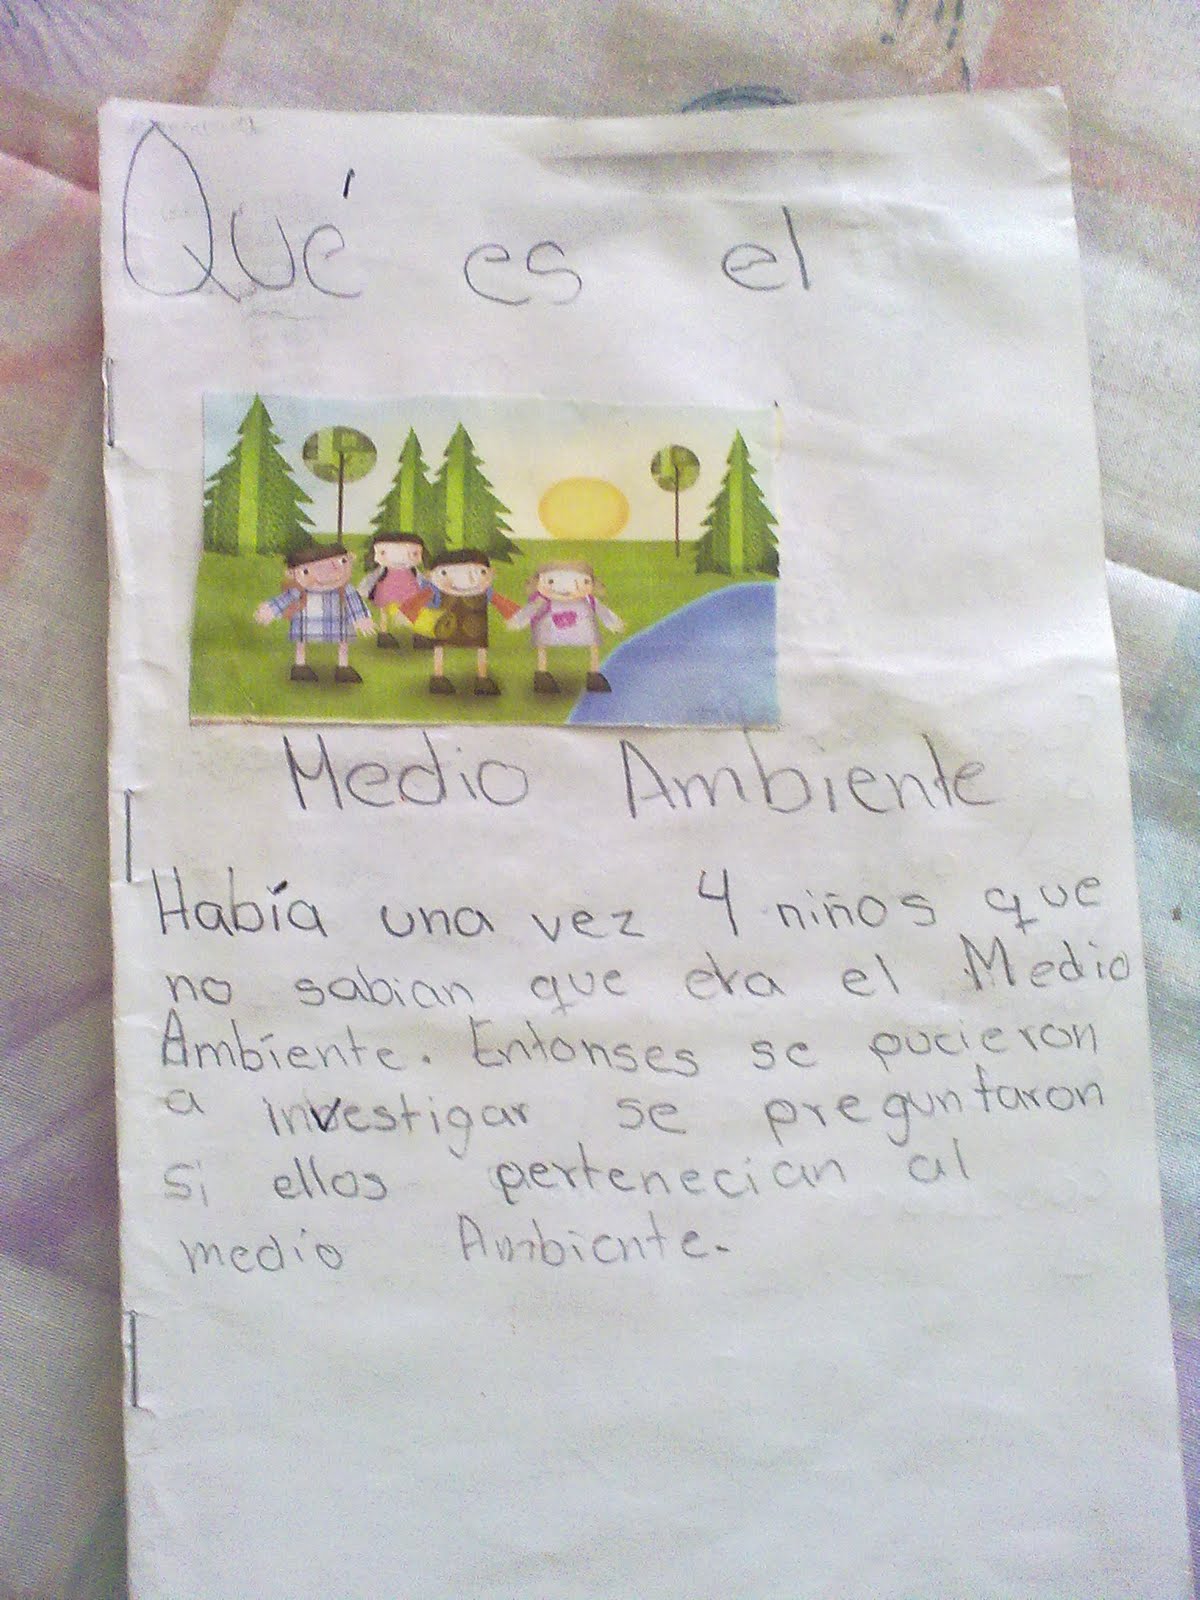 Qué es el
Medio Ambiente
Había una vez 4 niños que
no sabian que era el Medio
Ambiente. Entonses se pucieron
a investigar se preguntaron
si ellos pertenecian al
medio Ambiente.